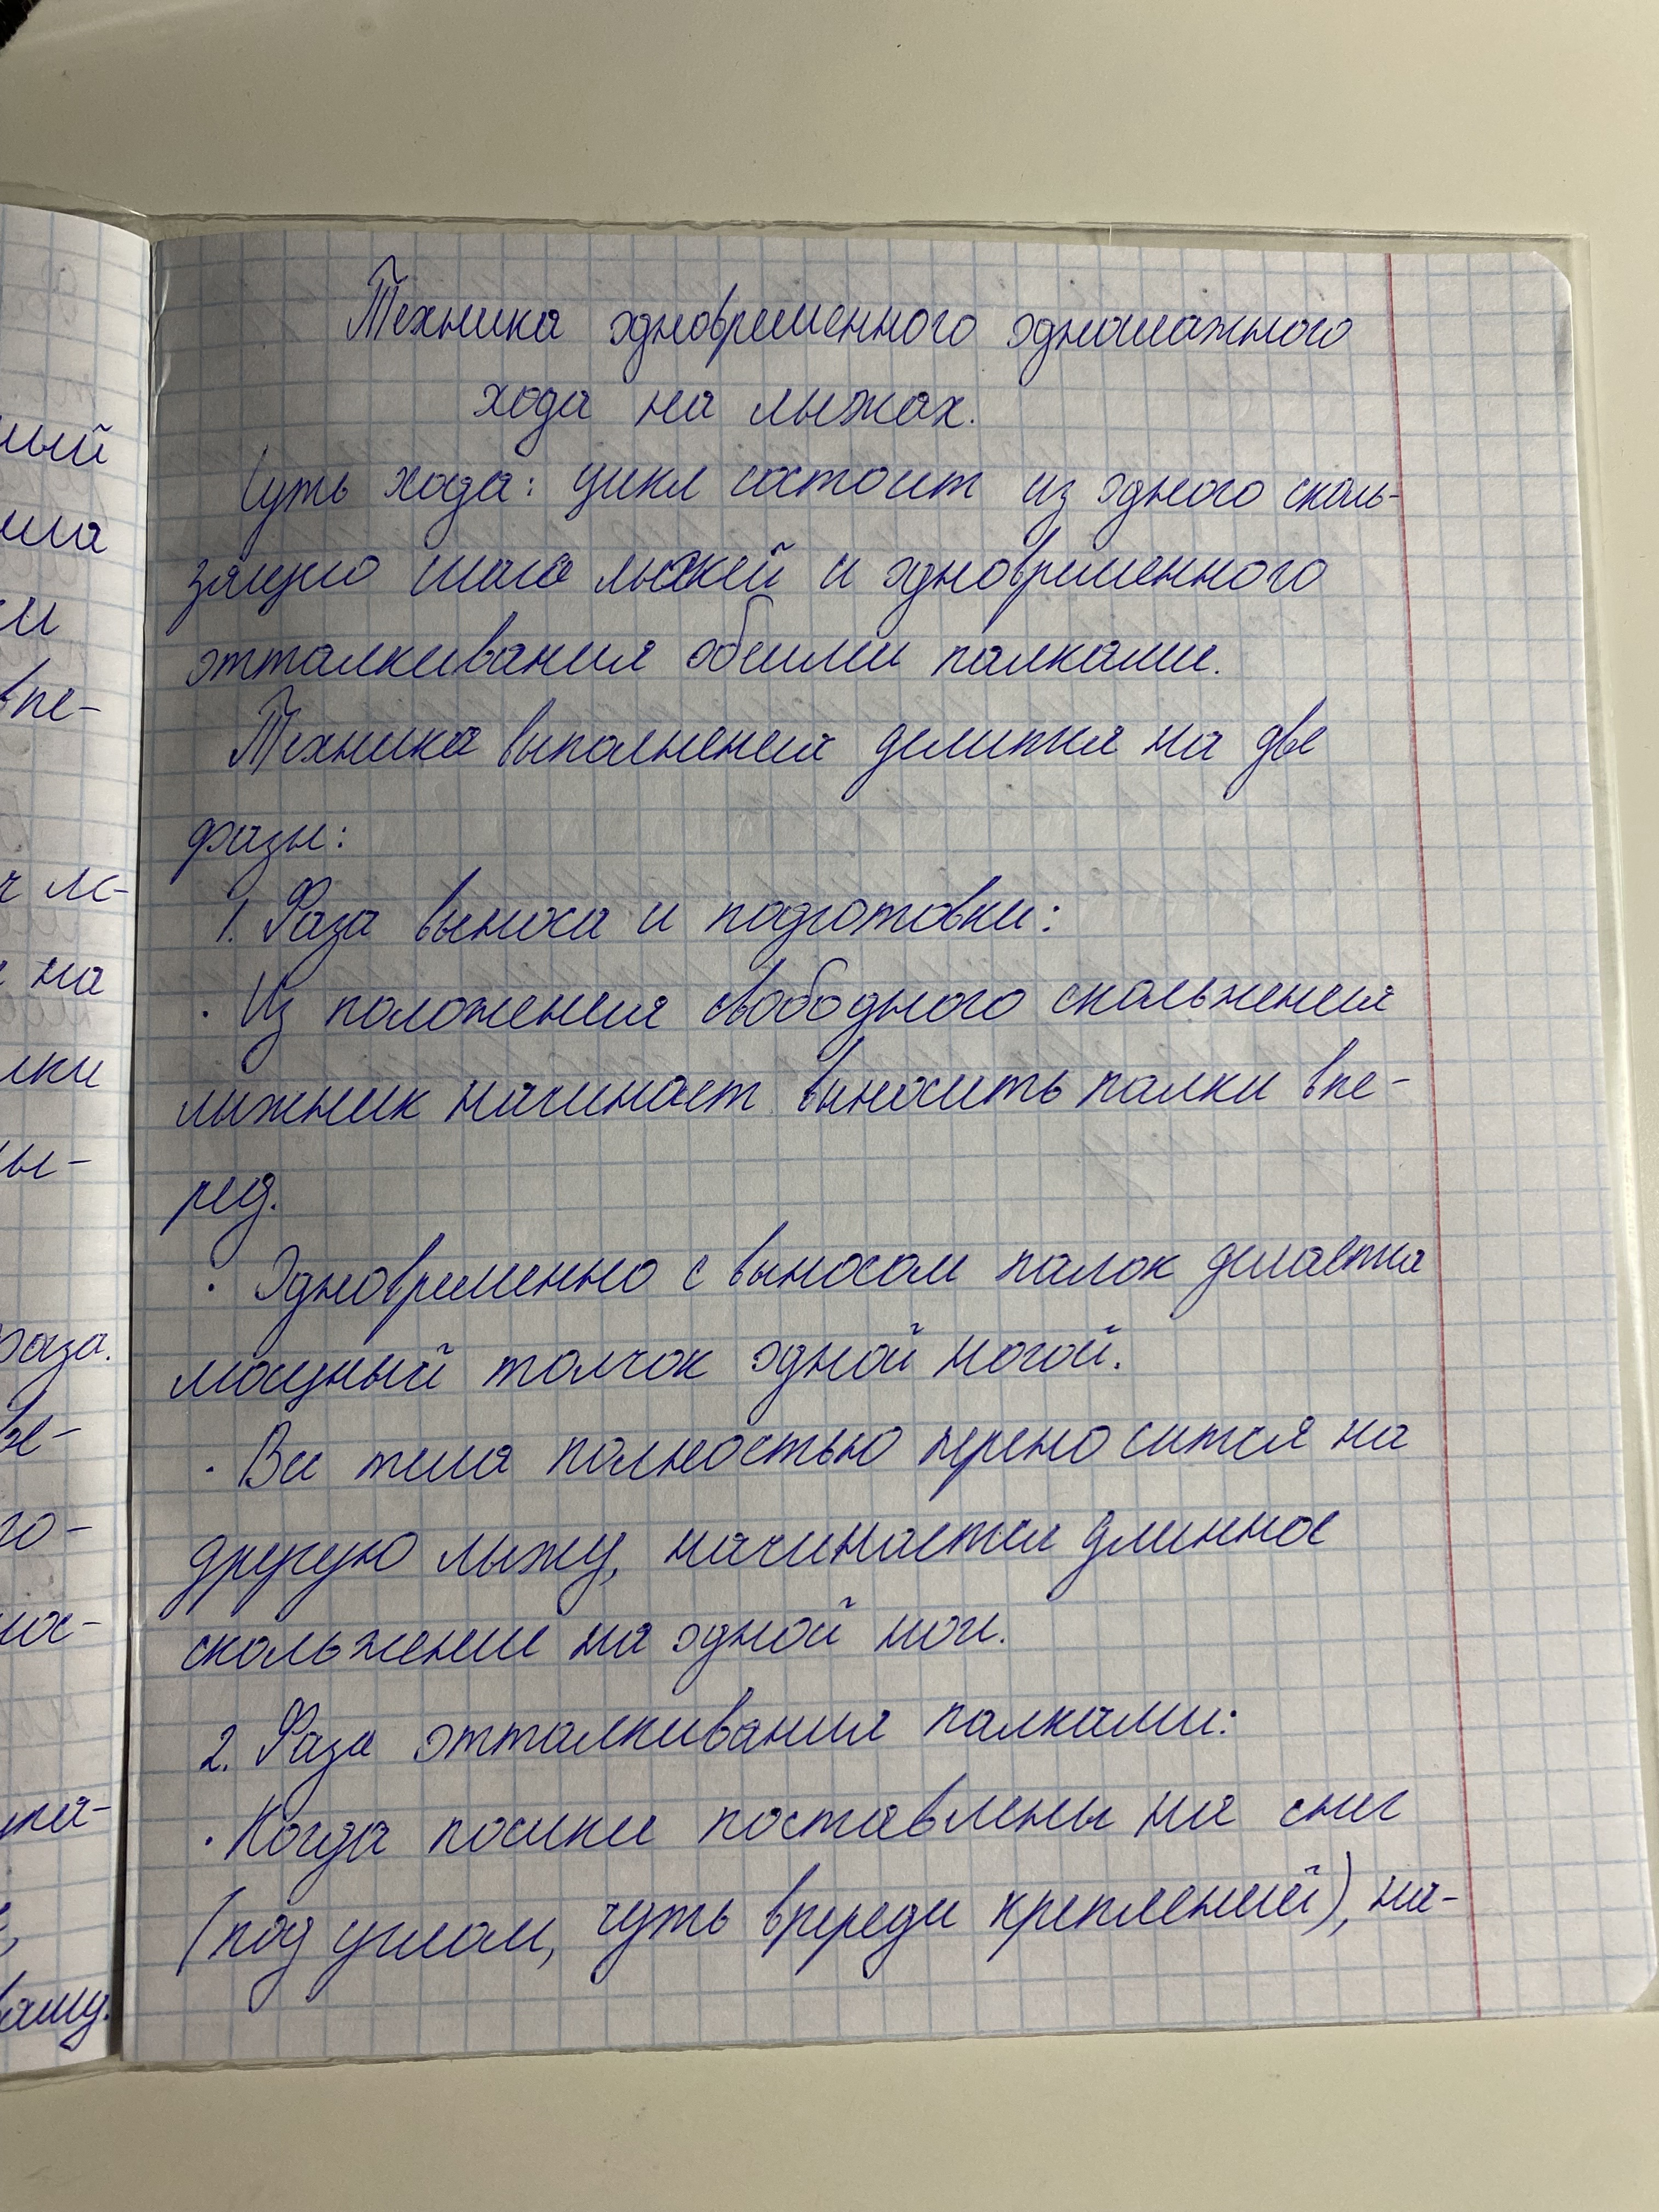 ный
ма
и
впе-
на
лки
ы-
раза.
го-
нос-
вашу.
Техника одновременного одношажного
хода на лыжах.
Суть хода: цикл состоит из одного сколь-
зящего шага лыжей и одновременного
отталкивания обеими палками.
Техника выполнения делится на две
фазы:
1. Фаза выноса и подготовки:
· Из положения свободного скольжения
лыжник начинает выносить палки впе-
ред.
· Одновременно с выносом палок делается
мощный толчок одной ногой.
· Вес тела полностью переносится на
другую лыжу, начинается длинное
скольжение на одной ноге.
2. Фаза отталкивания палками:
· Когда носики поставлены на снег
(под углом, чуть впереди креплений), на-